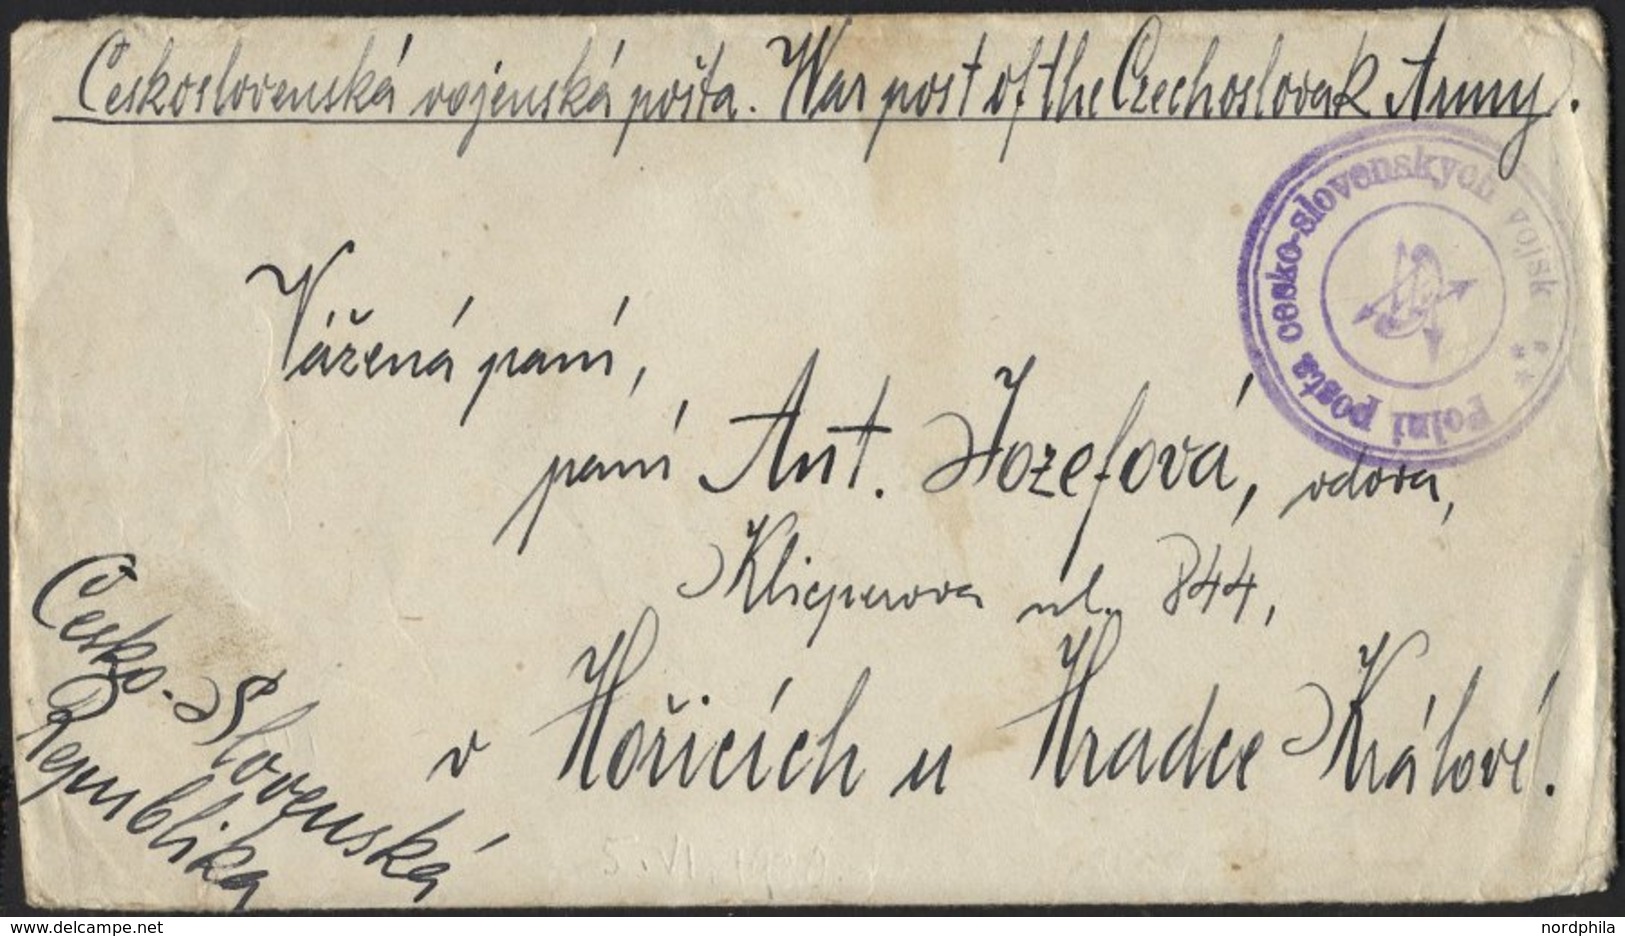 Československá vojenská pošta. War post of the Czechoslovak Army.
Polní pošta česko-slovenských vojsk **
Vážená paní,
paní Ant. Jozefová, vdova,
Klicperova ul. 844,
v Hořicích u Hradce Králové.
Česko-Slovenská
Republika
5. VI.
nordphila